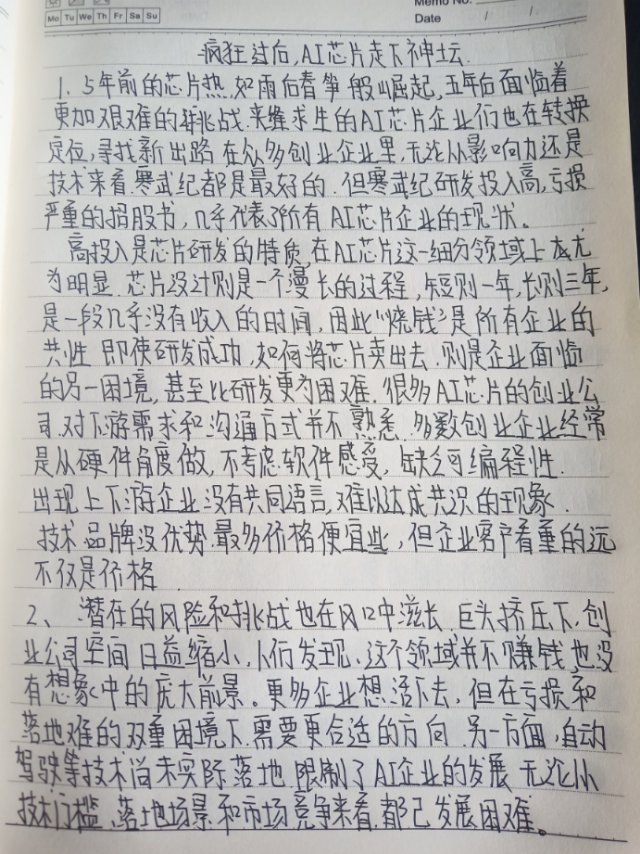 Mo Tu We Th Fr Sa Su
Memo No.
Date / /
疯狂过后,AI芯片走下神坛.
1. 5年前的芯片热,如雨后春笋般崛起,五年后面临着
更加艰难的挑战.夹缝求生的AI芯片企业们也在转换
定位,寻找新出路.在众多创业企业里,无论从影响力还是
技术来看寒武纪都是最好的.但寒武纪研发投入高,亏损
严重的招股书,几乎代表了所有AI芯片企业的现状。
高投入是芯片研发的特质,在AI芯片这一细分领域上尤
为明显.芯片设计则是一个漫长的过程,短则一年,长则三年,
是一段几乎没有收入的时间,因此"烧钱"是所有企业的
共性.即使研发成功,如何将芯片卖出去,则是企业面临
的另一困境,甚至比研发更为困难.很多AI芯片的创业公
司.对下游需求和沟通方式并不熟悉.多数创业企业经常
是从硬件角度做,不考虑软件感受,缺乏可编程性.
出现上下游企业没有共同语言,难以达成共识的现象.
技术品牌没优势.最多价格便宜些,但企业客户看重的远
不仅是价格
2、潜在的风险和挑战也在风口中滋长.巨头挤压下,创
业公司空间日益缩小,人们发现,这个领域并不赚钱,也没
有想象中的庞大前景。更多企业想活下去,但在亏损和
落地难的双重困境下.需要更合适的方向.另一方面,自动
驾驶等技术尚未实际落地.限制了AI企业的发展.无论从
技术门槛、落地场景和市场竞争来看.都已发展困难。